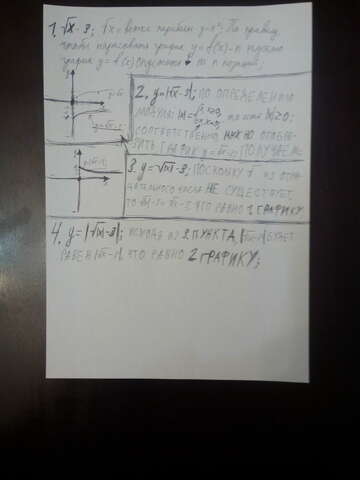 1. √x - 3; √x = ветке парабол y=x²; По правилу,
чтобы нарисовать график y = f(x) - n нужно
график y = f(x) опустить на n позиций;
y=√x
y=√x-3
2. y=|√x-3|; ПО ОПРЕДЕЛЕНИЮ
МОДУЛЯ: |x|= то есть |x|≥0;
СООТВЕТСТВЕННО, НУЖНО ОТОБРА-
ЗИТЬ ГРАФИК y=√x-3 ПОЛУЧАЕМ:
3. y=√|x|-3; ПОСКОЛЬКУ √ ИЗ ОТРИ-
ЦАТЕЛЬНОГО ЧИСЛА НЕ СУЩЕСТВУЕТ,
ТО √|x|-3=√x-3, ЧТО РАВНО 1 ГРАФИКУ
4. y=|√|x|-3|; ИСХОДЯ ИЗ 3 ПУНКТА, |√|x|-3| БУДЕТ
РАВЕН |√x-3|, ЧТО РАВНО 2 ГРАФИКУ;